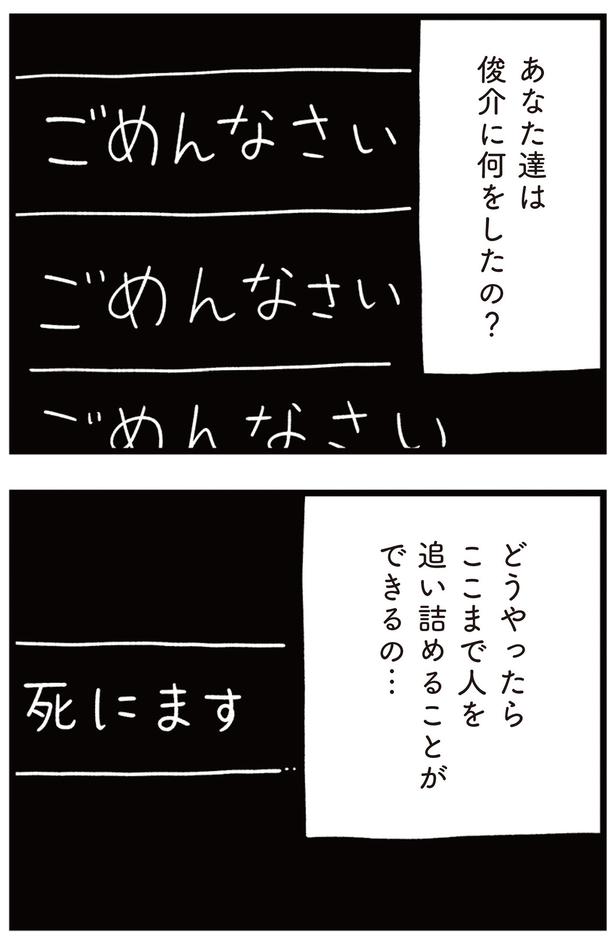 あなた達は
俊介に何をしたの？
ごめんなさい
ごめんなさい
ごめんなさい
どうやったら
ここまで人を
追い詰めることが
できるの…
死にます